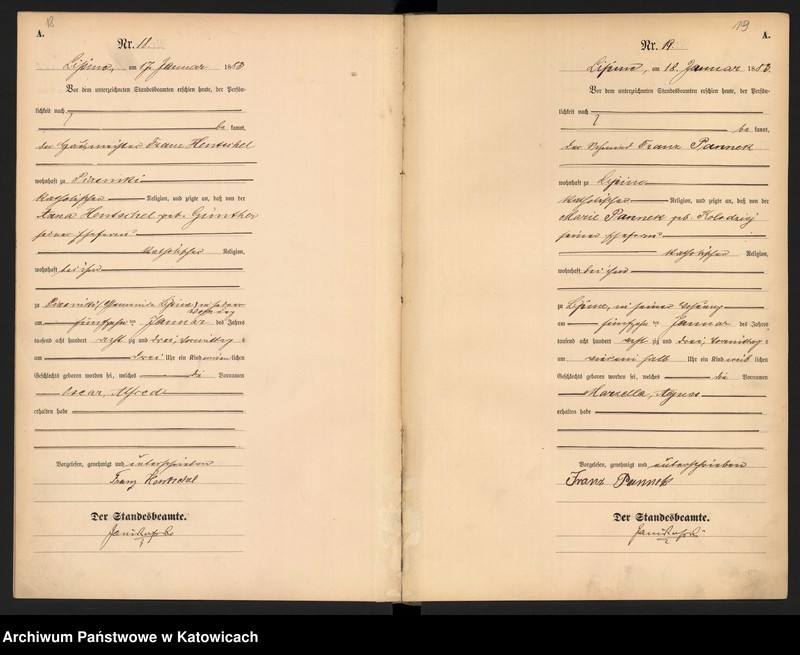 18
A.
Nr. 18.
Lipine, am 17. Januar 1883.
Vor dem unterzeichneten Standesbeamten erschien heute, der Persön-
lichkeit nach
be kannt,
der Franz Hentschel
wohnhaft zu Piasniki
katholischer Religion, und zeigte an, daß von der
Anna Hentschel geb. Günther
seiner Ehefrau
katholischer Religion,
wohnhaft bei ihm
zu Piasniki Lipine in seiner
Wohnung
am fünfzehnten Januar des Jahres
tausend acht hundert achtzig und drei, Vormittag s
um drei Uhr ein Kind männlichen
Geschlechts geboren worden sei, welches die Vornamen
Oscar, Alfred
erhalten habe
Vorgelesen, genehmigt und unterschrieben
Franz Hentschel
Der Standesbeamte.
19
A.
Nr. 19.
Lipine, am 18. Januar 1883.
Vor dem unterzeichneten Standesbeamten erschien heute, der Persön-
lichkeit nach
be kannt,
der Schmied Franz Pannek
wohnhaft zu Lipine
katholischer Religion, und zeigte an, daß von der
Marie Pannek geb. Kolodziej
seiner Ehefrau
katholischer Religion,
wohnhaft bei ihm
zu Lipine, in seiner Wohnung
am fünfzehnten Januar des Jahres
tausend acht hundert achtzig und drei, Vormittag s
um halb Uhr ein Kind weiblichen
Geschlechts geboren worden sei, welches die Vornamen
Marzella, Agnes
erhalten habe
Vorgelesen, genehmigt und unterschrieben
Franz Pannek
Der Standesbeamte.
Archiwum Państwowe w Katowicach